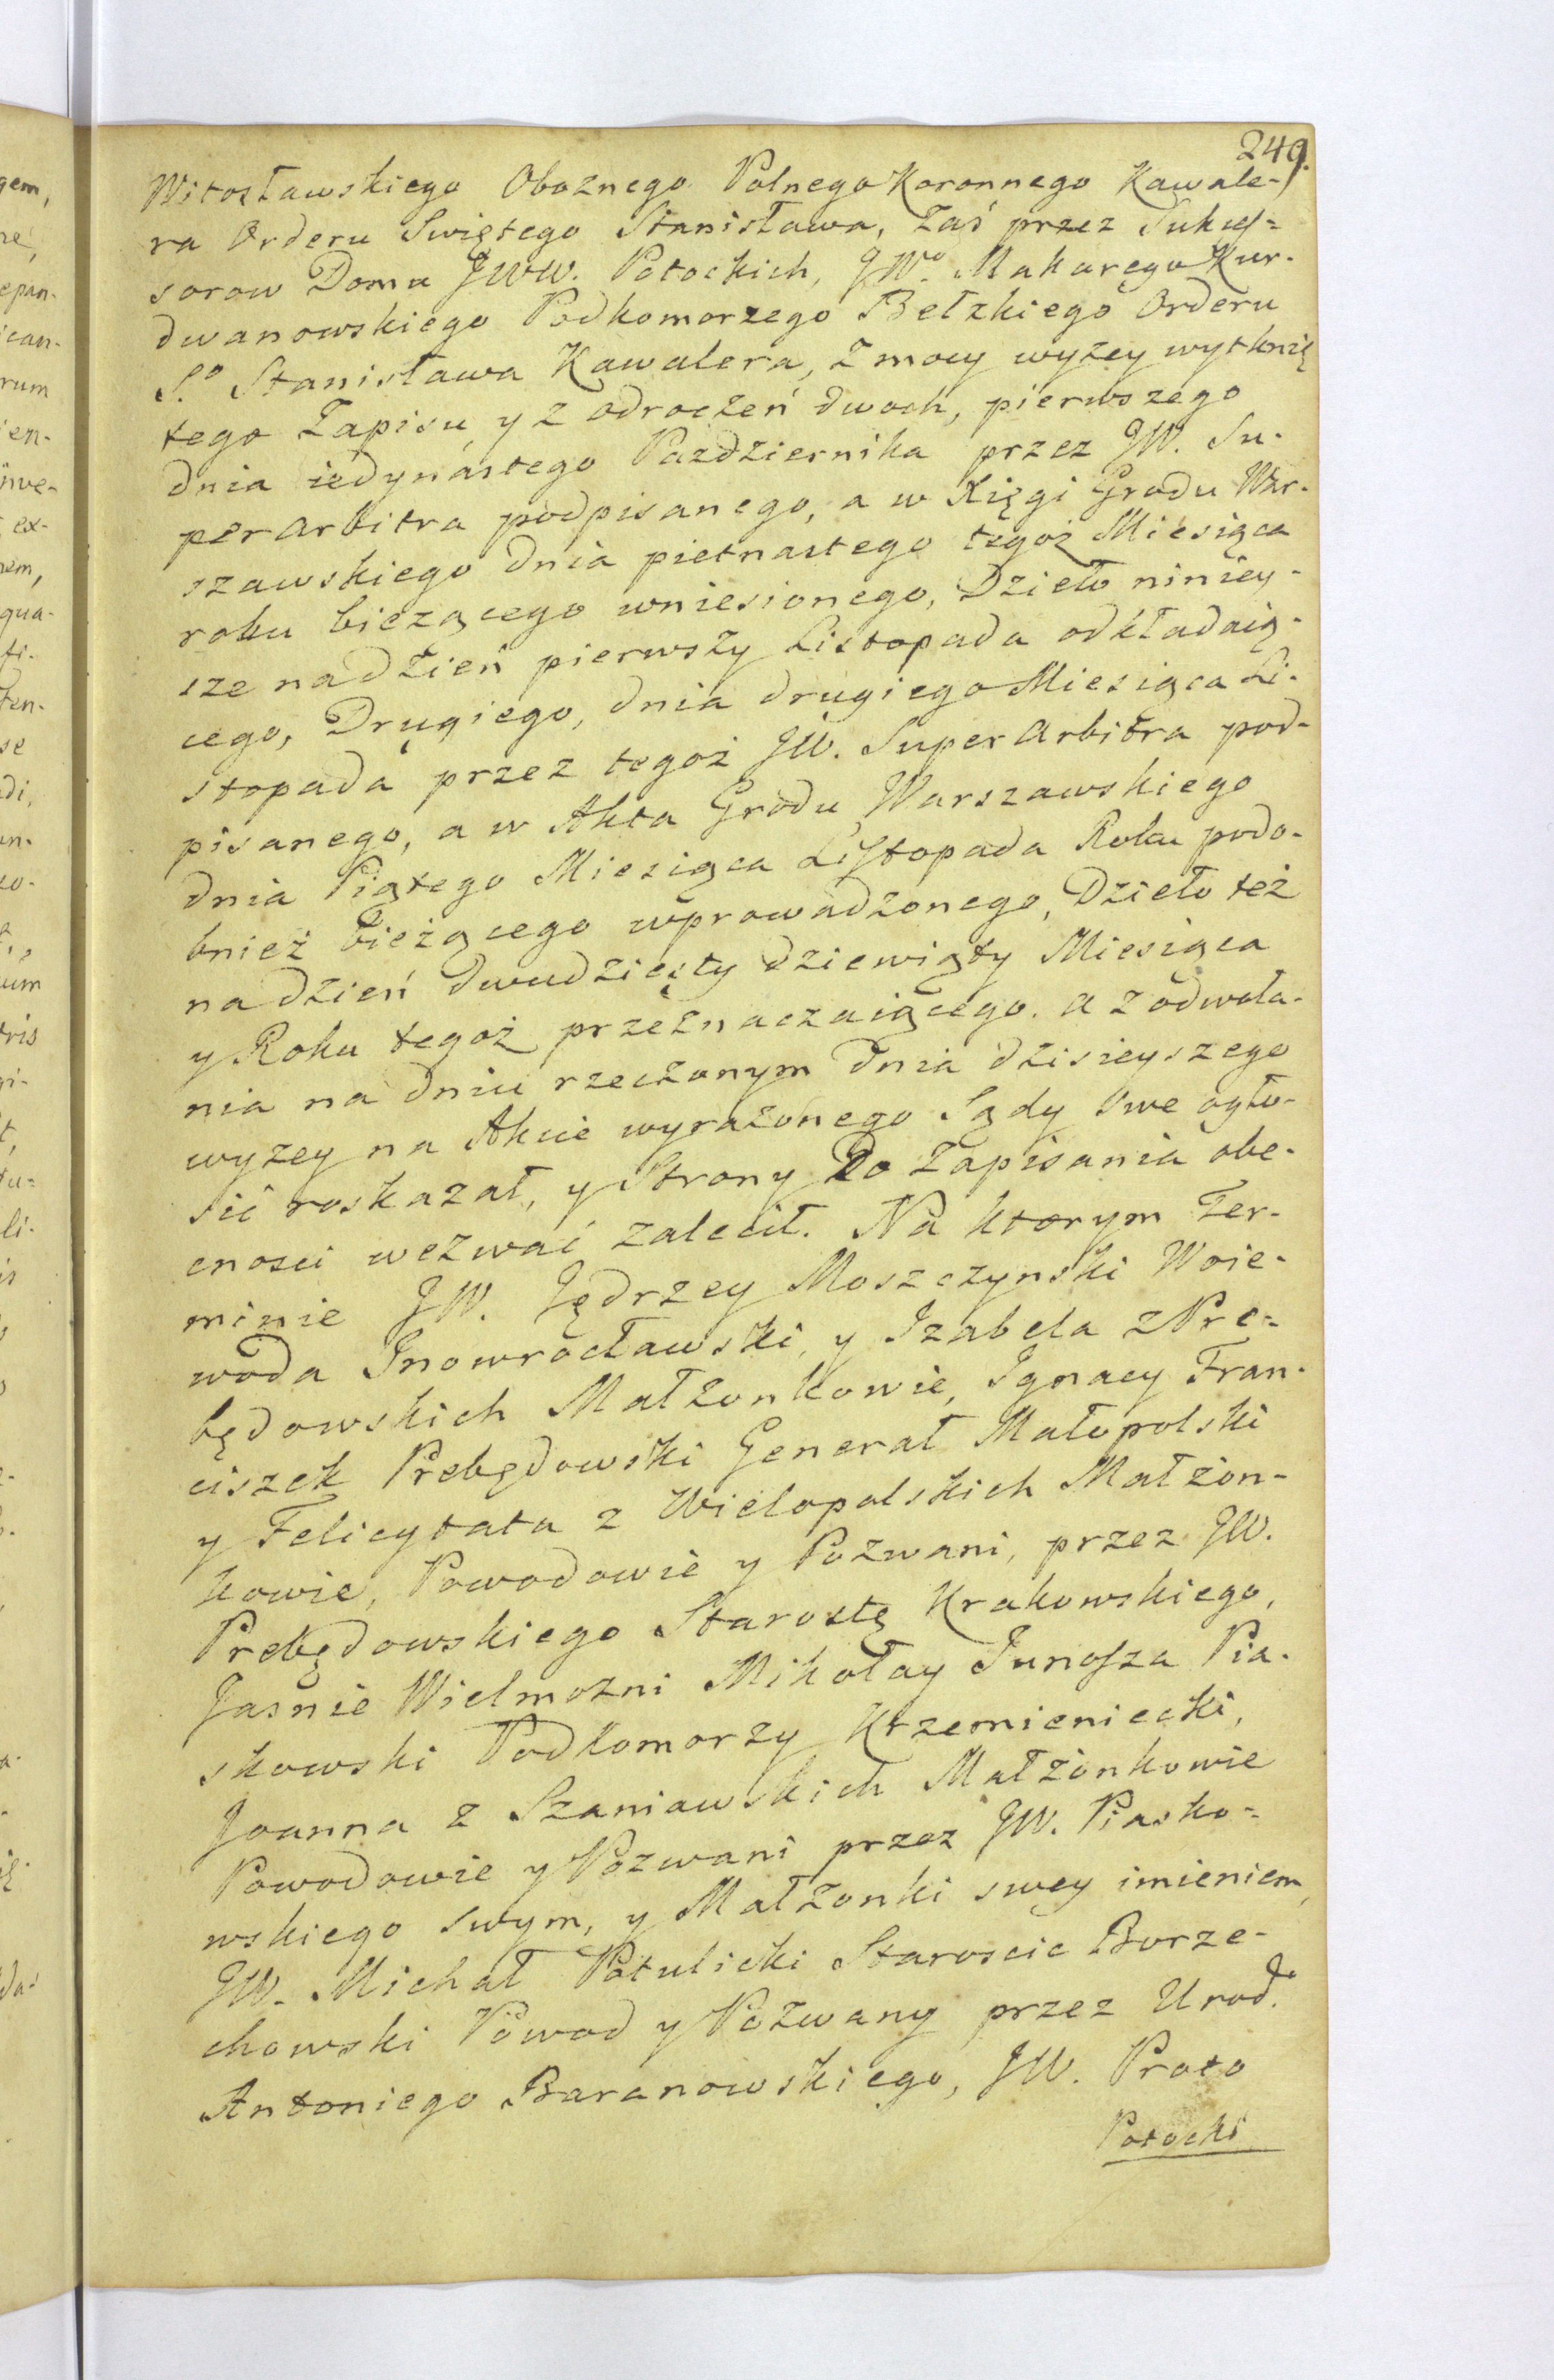 249.
Witosławskiego Oboznego Polnego Koronnego Kawale-
ra Orderu Swiętego Stanisława, Zaś przez Sukces=
sorow Domu JWW. Potockich, JWo. Makarego Kur-
dwanowskiego Podkomorzego Bełzkiego Orderu
So. Stanisława Kawalera, z mocy wyzey wytknię
tego Zapisu, y z odroczeń dwoch, pierwszego
dnia iedynastego Pazdziernika przez JW. Su-
perarbitra podpisanego, a w Xięgi Grodu War-
szawskiego dnia pietnastego tegoż Miesiąca
roku biezącego wniesionego, Dzieło niniey-
sze na dzień pierwszy Listopada odkładaią-
cego, Drugiego, dnia drugiego Miesiąca Li-
stopada przez tegoż JW. Super arbitra pod-
pisanego, a w Akta Grodu Warszawskiego
dnia Piątego Miesiąca Listopada Roku podo-
bnież bieżącego wprowadzonego, Dzieło też
na dzień dwudziesty dziewiąty Miesiąca
y Roku tegoż przeznaczaiącego. a z odwoła-
nia na dniu rzeczonym dnia dzisieyszego
wyzey na Akcie wyrażonego Sądy swe ogło-
sić roskazał, y Strony Do Zapisania obe-
cnosci wezwać zalecił. Na ktorym Ter-
minie JW. Jędrzey Moszczynski Woie-
woda Inowrocławski, y Izabela z Pre-
będowskich Małżonkowie, Ignacy Fran-
ciszek Prebędowski Generał Małopolski
y Felicytata z Wielopolskich Małżon-
kowie, Powodowie y Pozwani, przez JW.
Prebędowskiego Starostę Krakowskiego,
Jasnie Wielmozni Mikołay Junosza Pia-
skowski Podkomorzy Krzemieniecki,
Joanna z Szaniawskich Małżonkowie
Powodowie y Pozwani przez JW. Piasko-
wskiego swym, y Małżonki swey imieniem,
JW. Michał Potulicki Staroscic Borze-
chowski Powod y Pozwany przez Urod.
Antoniego Baranowskiego, JW. Prota
Potocki